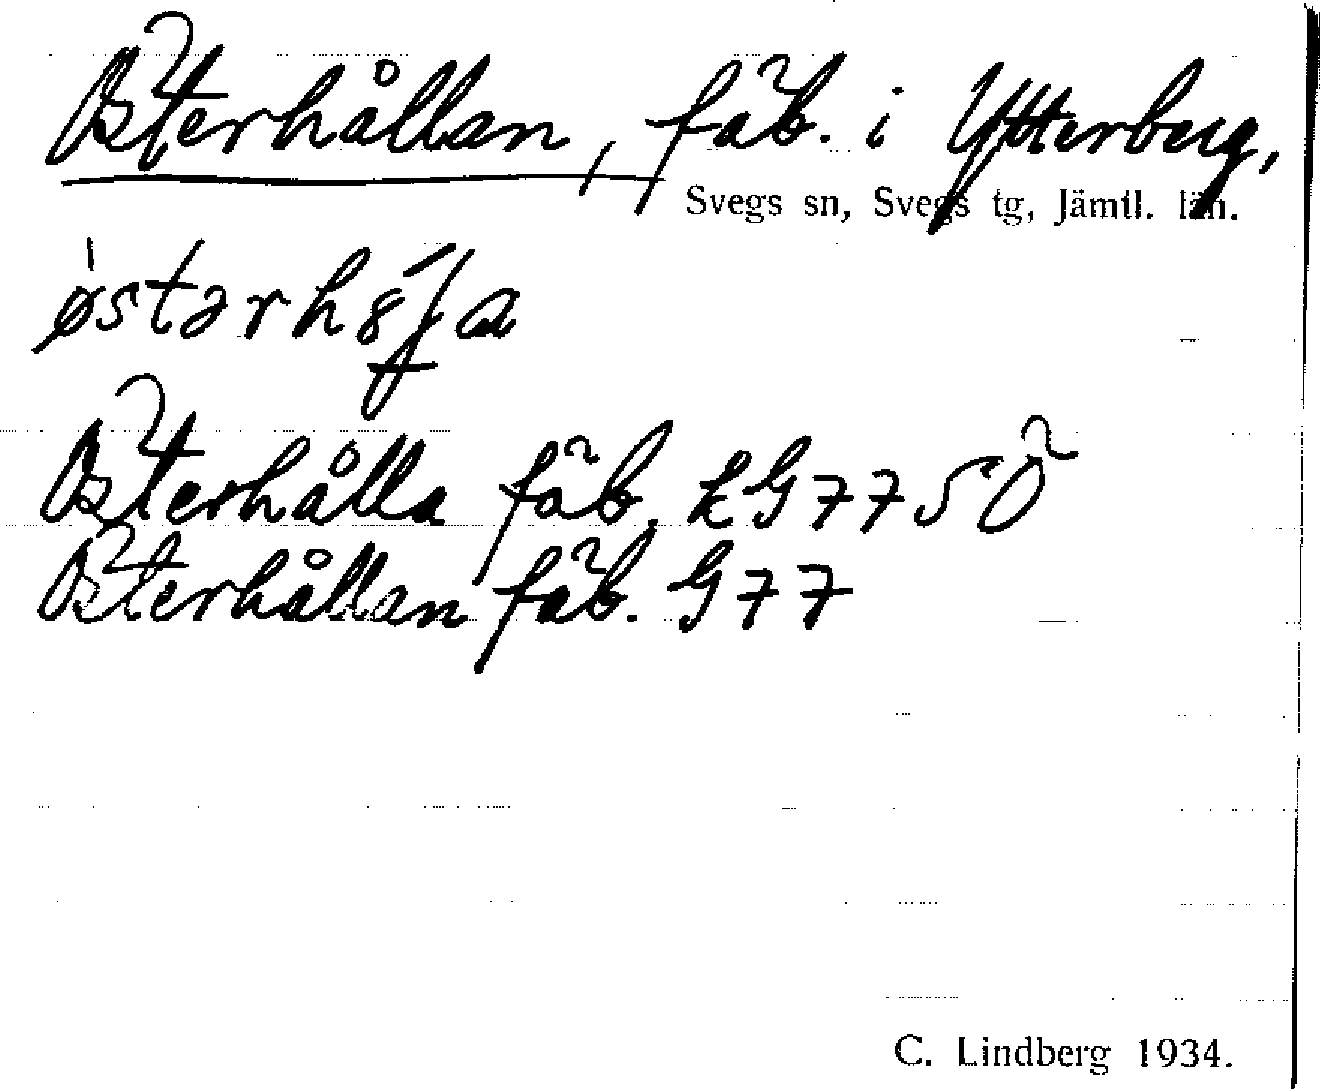 Österhållan, fäb. i Ytterberg,
Svegs sn, Svegs tg, Jämtl. län.
Österhålla fäb. LG77SÖ
Österhållan fäb. G77
C. Lindberg 1934.